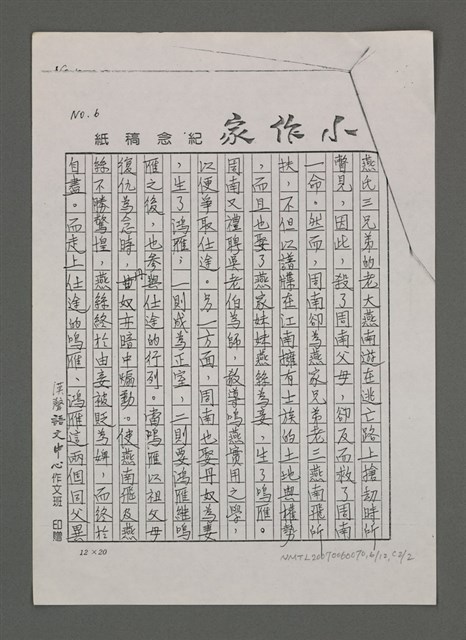 NO. 6
小作家
紀念稿紙
燕氏三兄弟的老大燕南遊在逃亡路上搶劫時所
聲見,因此,殺了周南父母,卻反而救了周南
一命。然而,周南卻為燕家兄弟老三燕南飛所
扶,不但以譜牒在江南擁有士族的土地與權勢
,而且也娶了燕家妹妹燕絲為妾,生了鳴雁。
周南又禮聘吳老伯為師,教導鳴燕實用之學,
以便爭取仕途。另一方面,周南也娶丹奴為妻
,生了鴻雁;一則成為正室,二則要鴻雁繼鳴
雁之後,也參與仕途的行列。當鳴雁以祖父母
復仇為念時,丹奴亦暗中煽動。使燕南飛及燕
絲不勝驚惶,燕絲終於由妾被貶為婢,而終於
自盡。而走上仕途的鳴雁、鴻雁這兩個同父異
漢聲語文中心作文班 印贈
12×20
NMTL20070060070,6/12,C2/2